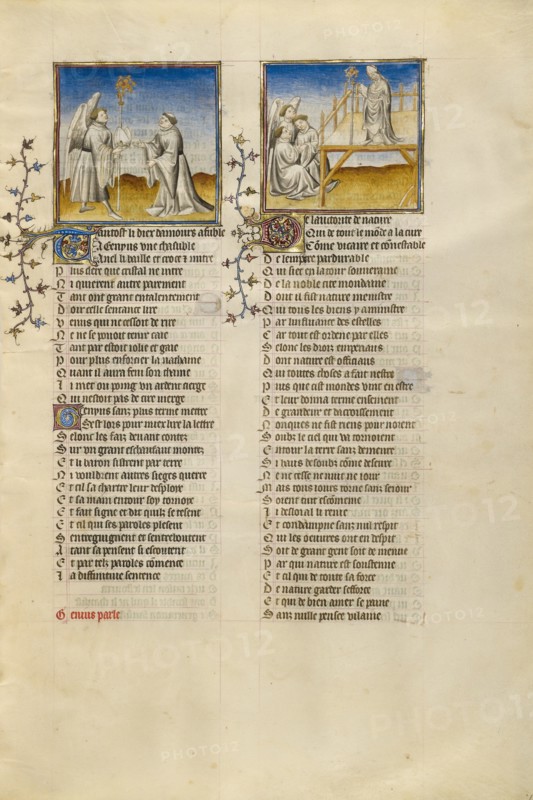 Tantost li diex damours afuble
A Genyus vne chasuble
Anel li baille et croce et mitre
Plus clere que cristal ne vitre
Ni quierent autre parment
Tant ont grant entalentement
Doir celle sentance lire
Venus qui ne cessoit de rire
Ne ne se pouoit tenir caie
Tant par estoit iolie et gaie
Pour plus enforcer la nathaine
Quant il aura fem son thaime
Li met ou poing vn ardent cierge
Qui nestoit pas de cire vierge
Genyus sanz plus terme mettre
Sest lors pour miex lire la lettre
Selonc les faiz deuant contez
Sur vn grant eschaufaut montez
Et li baron sistrent par terre
Ni vouldrent autres sieges querre
Et cil sa chartre leur desploie
Et sa main entour soy tornoie
Et fait signe et dit quil se tesent
Et cil qui ses paroles plesent
Sentreguignent et sentreboutent
Atant sapensent si escoutent
Et par telz paroles cõmence
La diffinitiue sentence
Genius parle
De lauctorite de nature
Qui de tout le mõde a la cure
Cõme vicaire et cõnestable
De lempere pardurable
Qui siet en la tour souueraine
De la noble cite mondaine
Dont il fist nature menistre
Qui tous les biens y aministre
Par linfluance des estelles
Car tout est ordene par elles
Selonc les droiz emperiaus
Dont nature est officiaus
Qui toutes choses a fait nestre
Puis que cist mondes vint en estre
Et leur donna terme ensement
De grandeur et dacroissement
Nonques ne fist riens pour noient
Soubz le ciel qui va tornoient
Entour la terre sanz demeure
Si haus desoubz cõme deseure
Ne ne cesse ne nuit ne iour
Mais tous iours torne sanz seiour
Soient tuit escõmenie
Li desloial li renie
Et condampne sanz nul respit
Qui les oeuures ont en despit
Soit de grant gent soit de menue
Par qui nature est soustenue
Et cil qui de toute sa force
De nature garder sefforce
Et qui de bien amer se paine
Sanz nulle pensee vilaine
PHOTO12